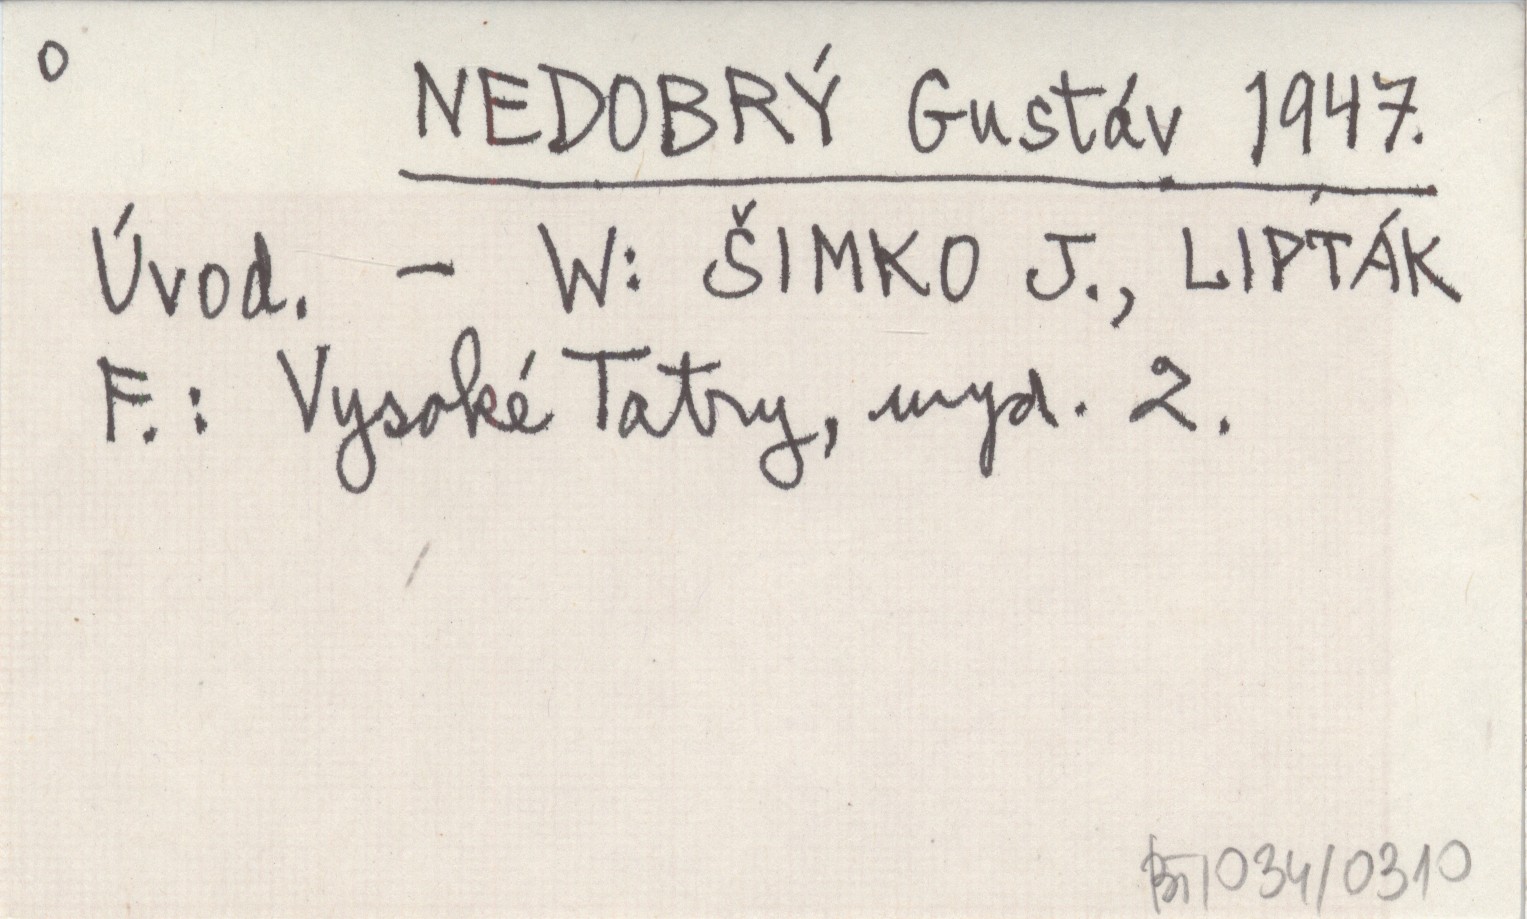 o
NEDOBRÝ Gustáv 1947.
Úvod. — W: ŠIMKO J., LIPTÁK
F.: Vysoké Tatry, wyd. 2.
BT/034/0310